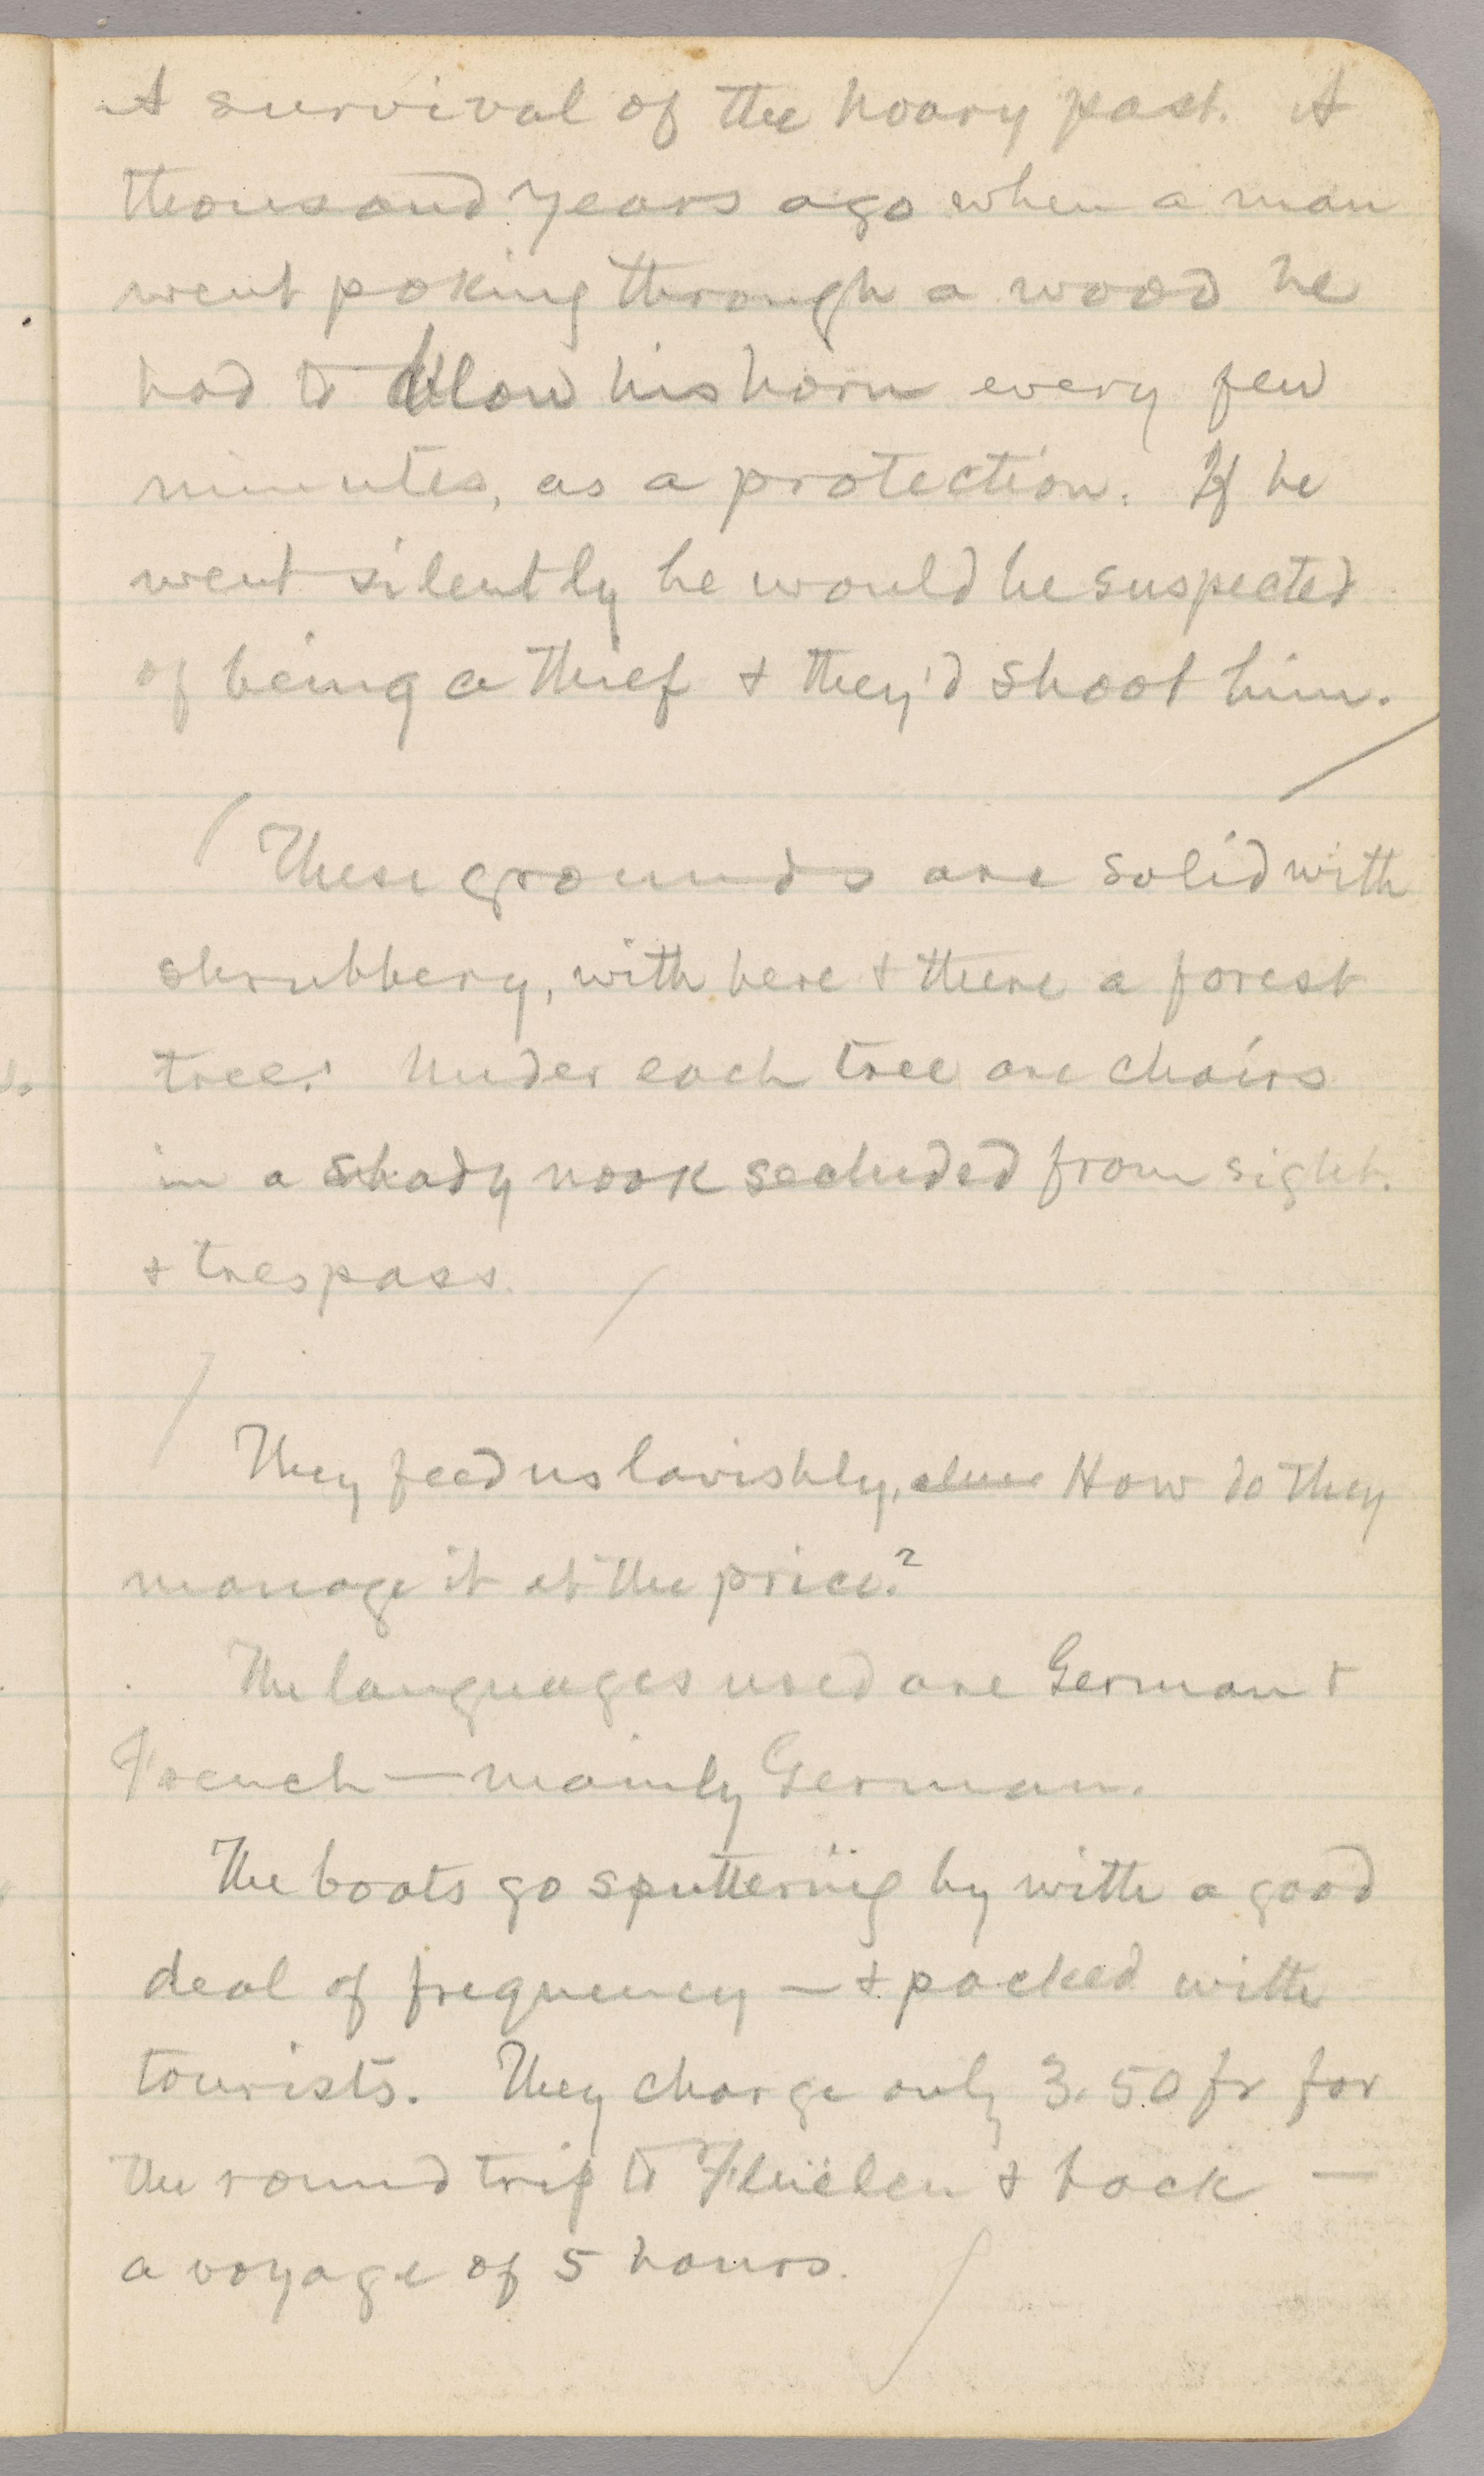 A survival of the hoary past. A
thousand years ago when a man
went poking through a wood he
had to blow his horn every few
minutes, as a protection. If he
went silently he would be suspected
of being a thief & they'd shoot him.
These grounds are solid with
shrubbery, with here & there a forest
tree. Under each tree are chairs
in a shady nook secluded from sight.
& trespass.
They feed us lavishly, How do they
manage it at the price?
The languages used are German &
French — mainly German.
The boats go sputtering by with a good
deal of frequency — & packed with
tourists. They charge only 3.50 fr for
the round trip to Flüelen & back —
a voyage of 5 hours.